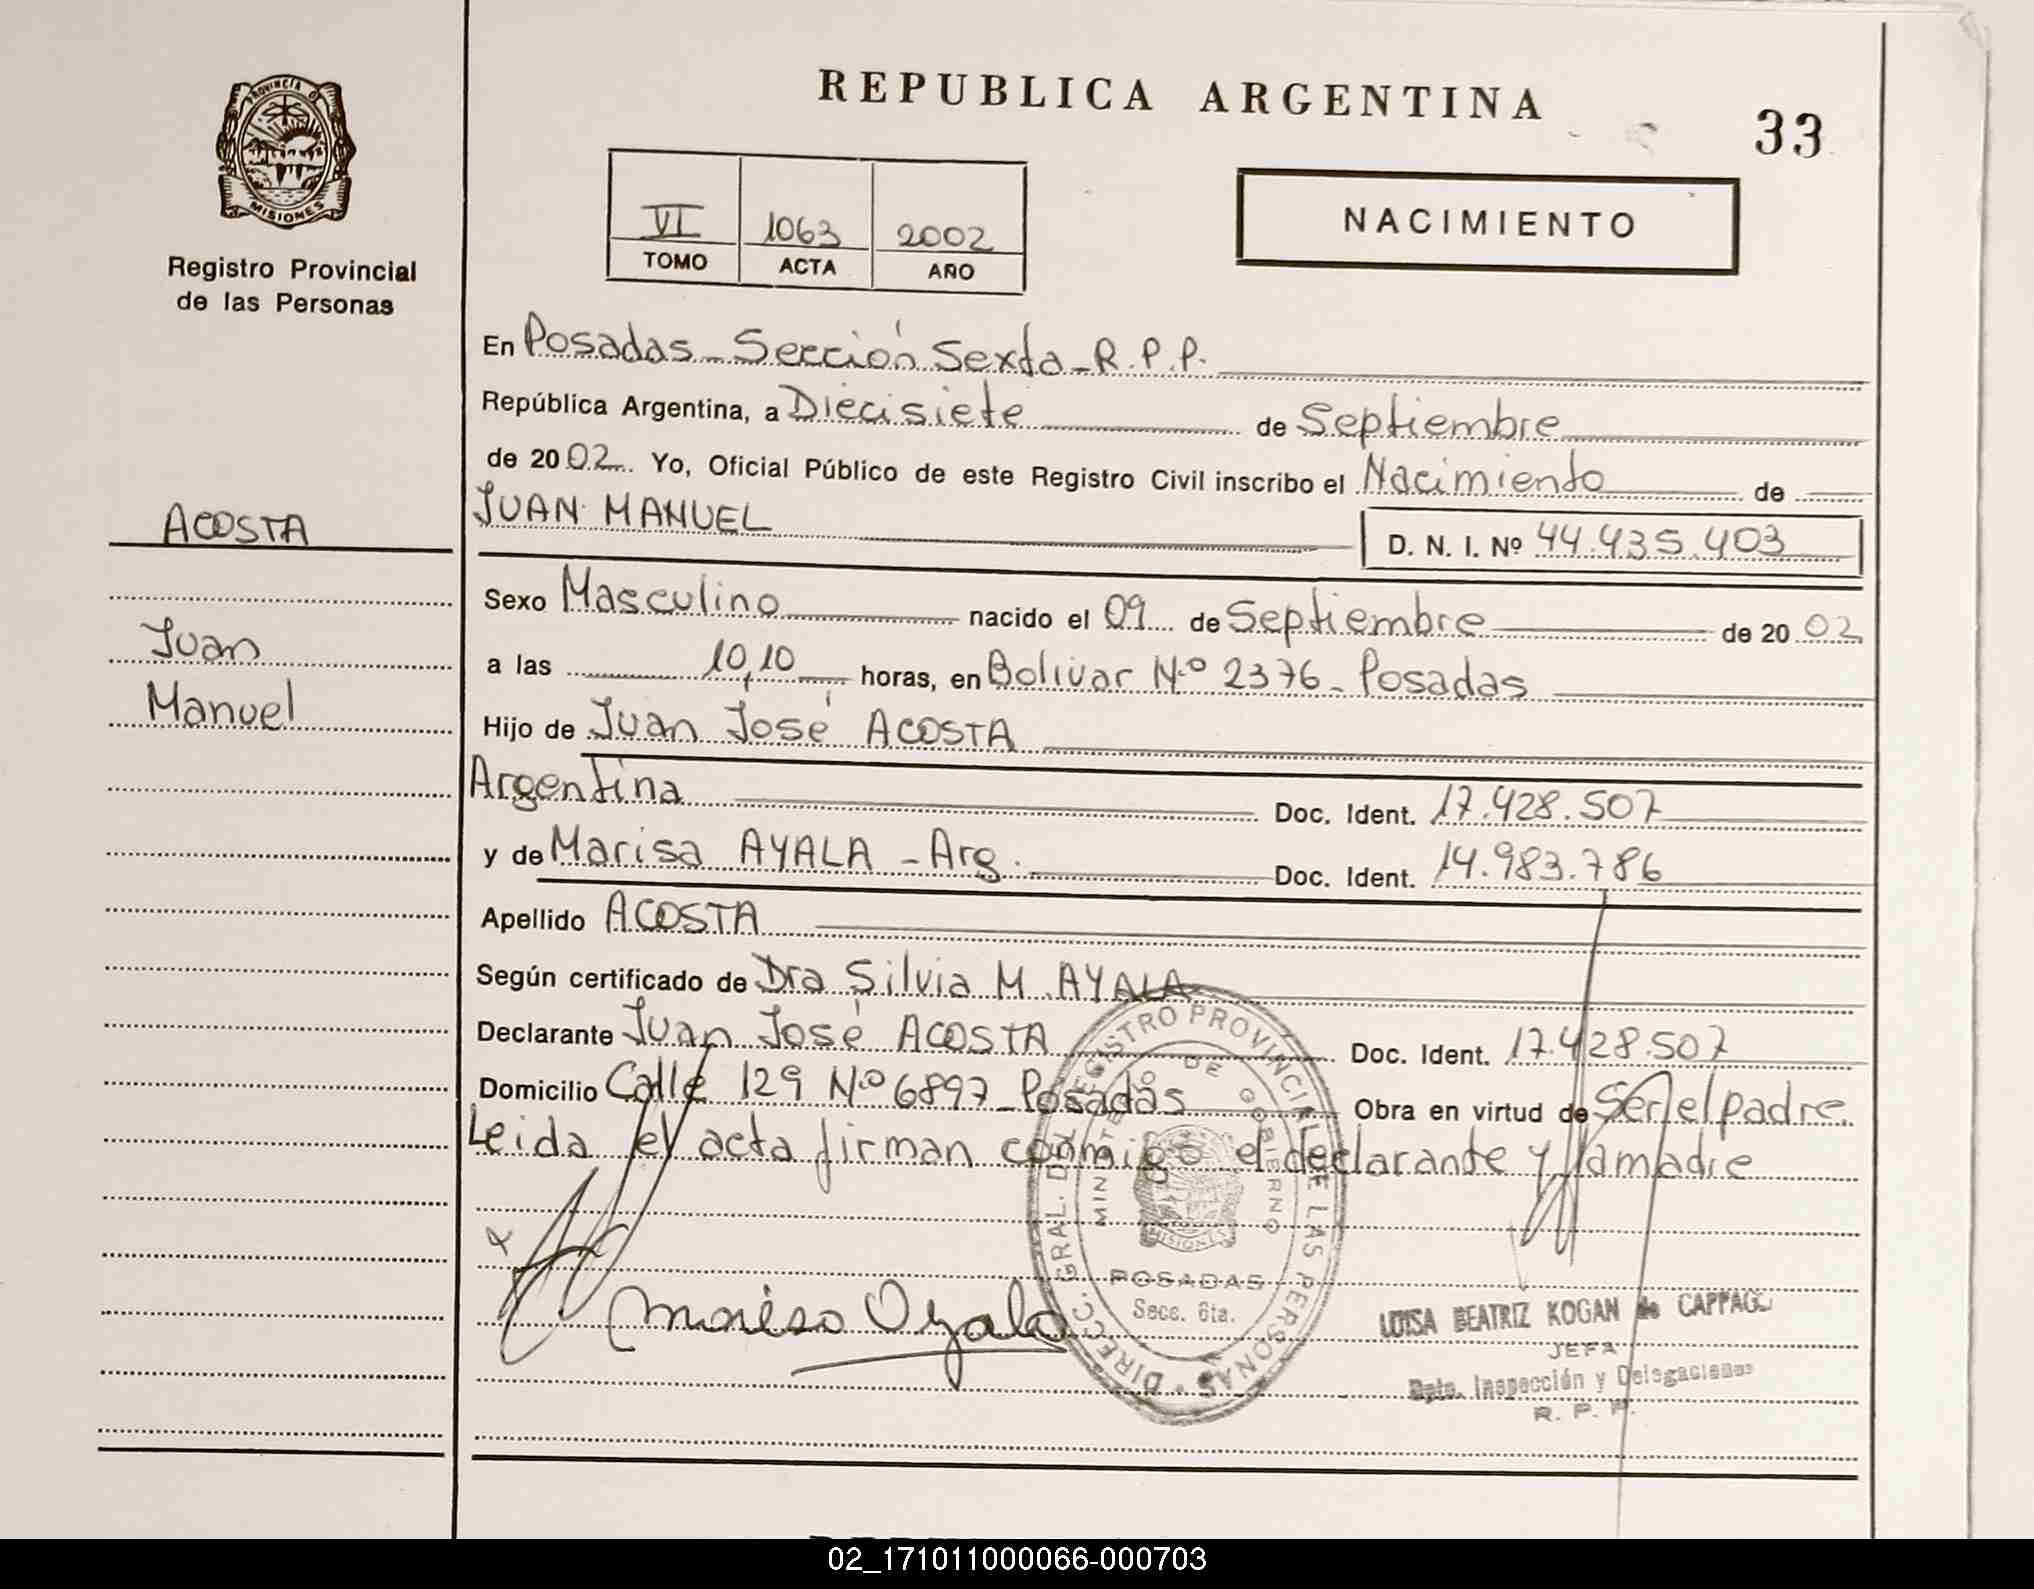 REPUBLICA ARGENTINA
33
PROVINCIA DE
MISIONES
Registro Provincial
de las Personas
VI 1063 2002
TOMO ACTA AÑO
NACIMIENTO
En Posadas - Sección Sexta - R.P.P.
República Argentina, a Diecisiete de Septiembre
de 2002. Yo, Oficial Público de este Registro Civil inscribo el Nacimiento de
JUAN MANUEL
D. N. I. Nº 44.435.403
ACOSTA
Juan
Manuel
Sexo Masculino nacido el 09 de Septiembre de 2002
a las 10,10 horas, en Bolívar N.º 2376 - Posadas
Hijo de Juan José ACOSTA
Argentina Doc. Ident. 17.428.507
y de Marisa AYALA - Arg. Doc. Ident. 14.983.786
Apellido ACOSTA
Según certificado de Dra Silvia M. AYALA
Declarante Juan José ACOSTA Doc. Ident. 17.428.507
Domicilio Calle 129 N.º 6897 - Posadas Obra en virtud de Ser el padre.
Leida el acta firman conmigo el declarante y la madre
DIRECC. GRAL. DEL REGISTRO PROVINCIAL DE LAS PERSONAS
MINISTERIO DE GOBIERNO
MISIONES
POSADAS
Secc. 6ta.
LUISA BEATRIZ KOGAN de
JEFA
Dpto. Inspección y Delegaciones
R. P. P.
02_171011000066-000703